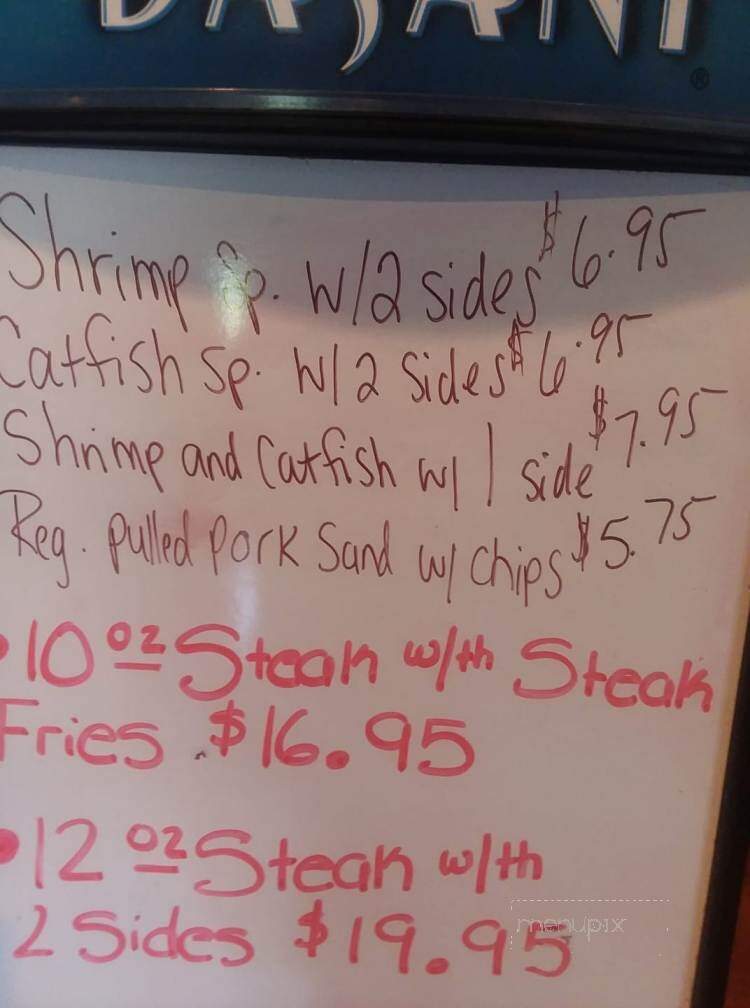 DASANI
®
Shrimp Sp. w/2 sides $6.95
Catfish sp. w/2 sides $6.95
Shrimp and Catfish w/ 1 side $7.95
Reg. pulled pork Sand w/ chips $5.75
• 10 oz Steak w/th Steak
Fries $16.95
• 12 oz Steak w/th
2 Sides $19.95
menupix